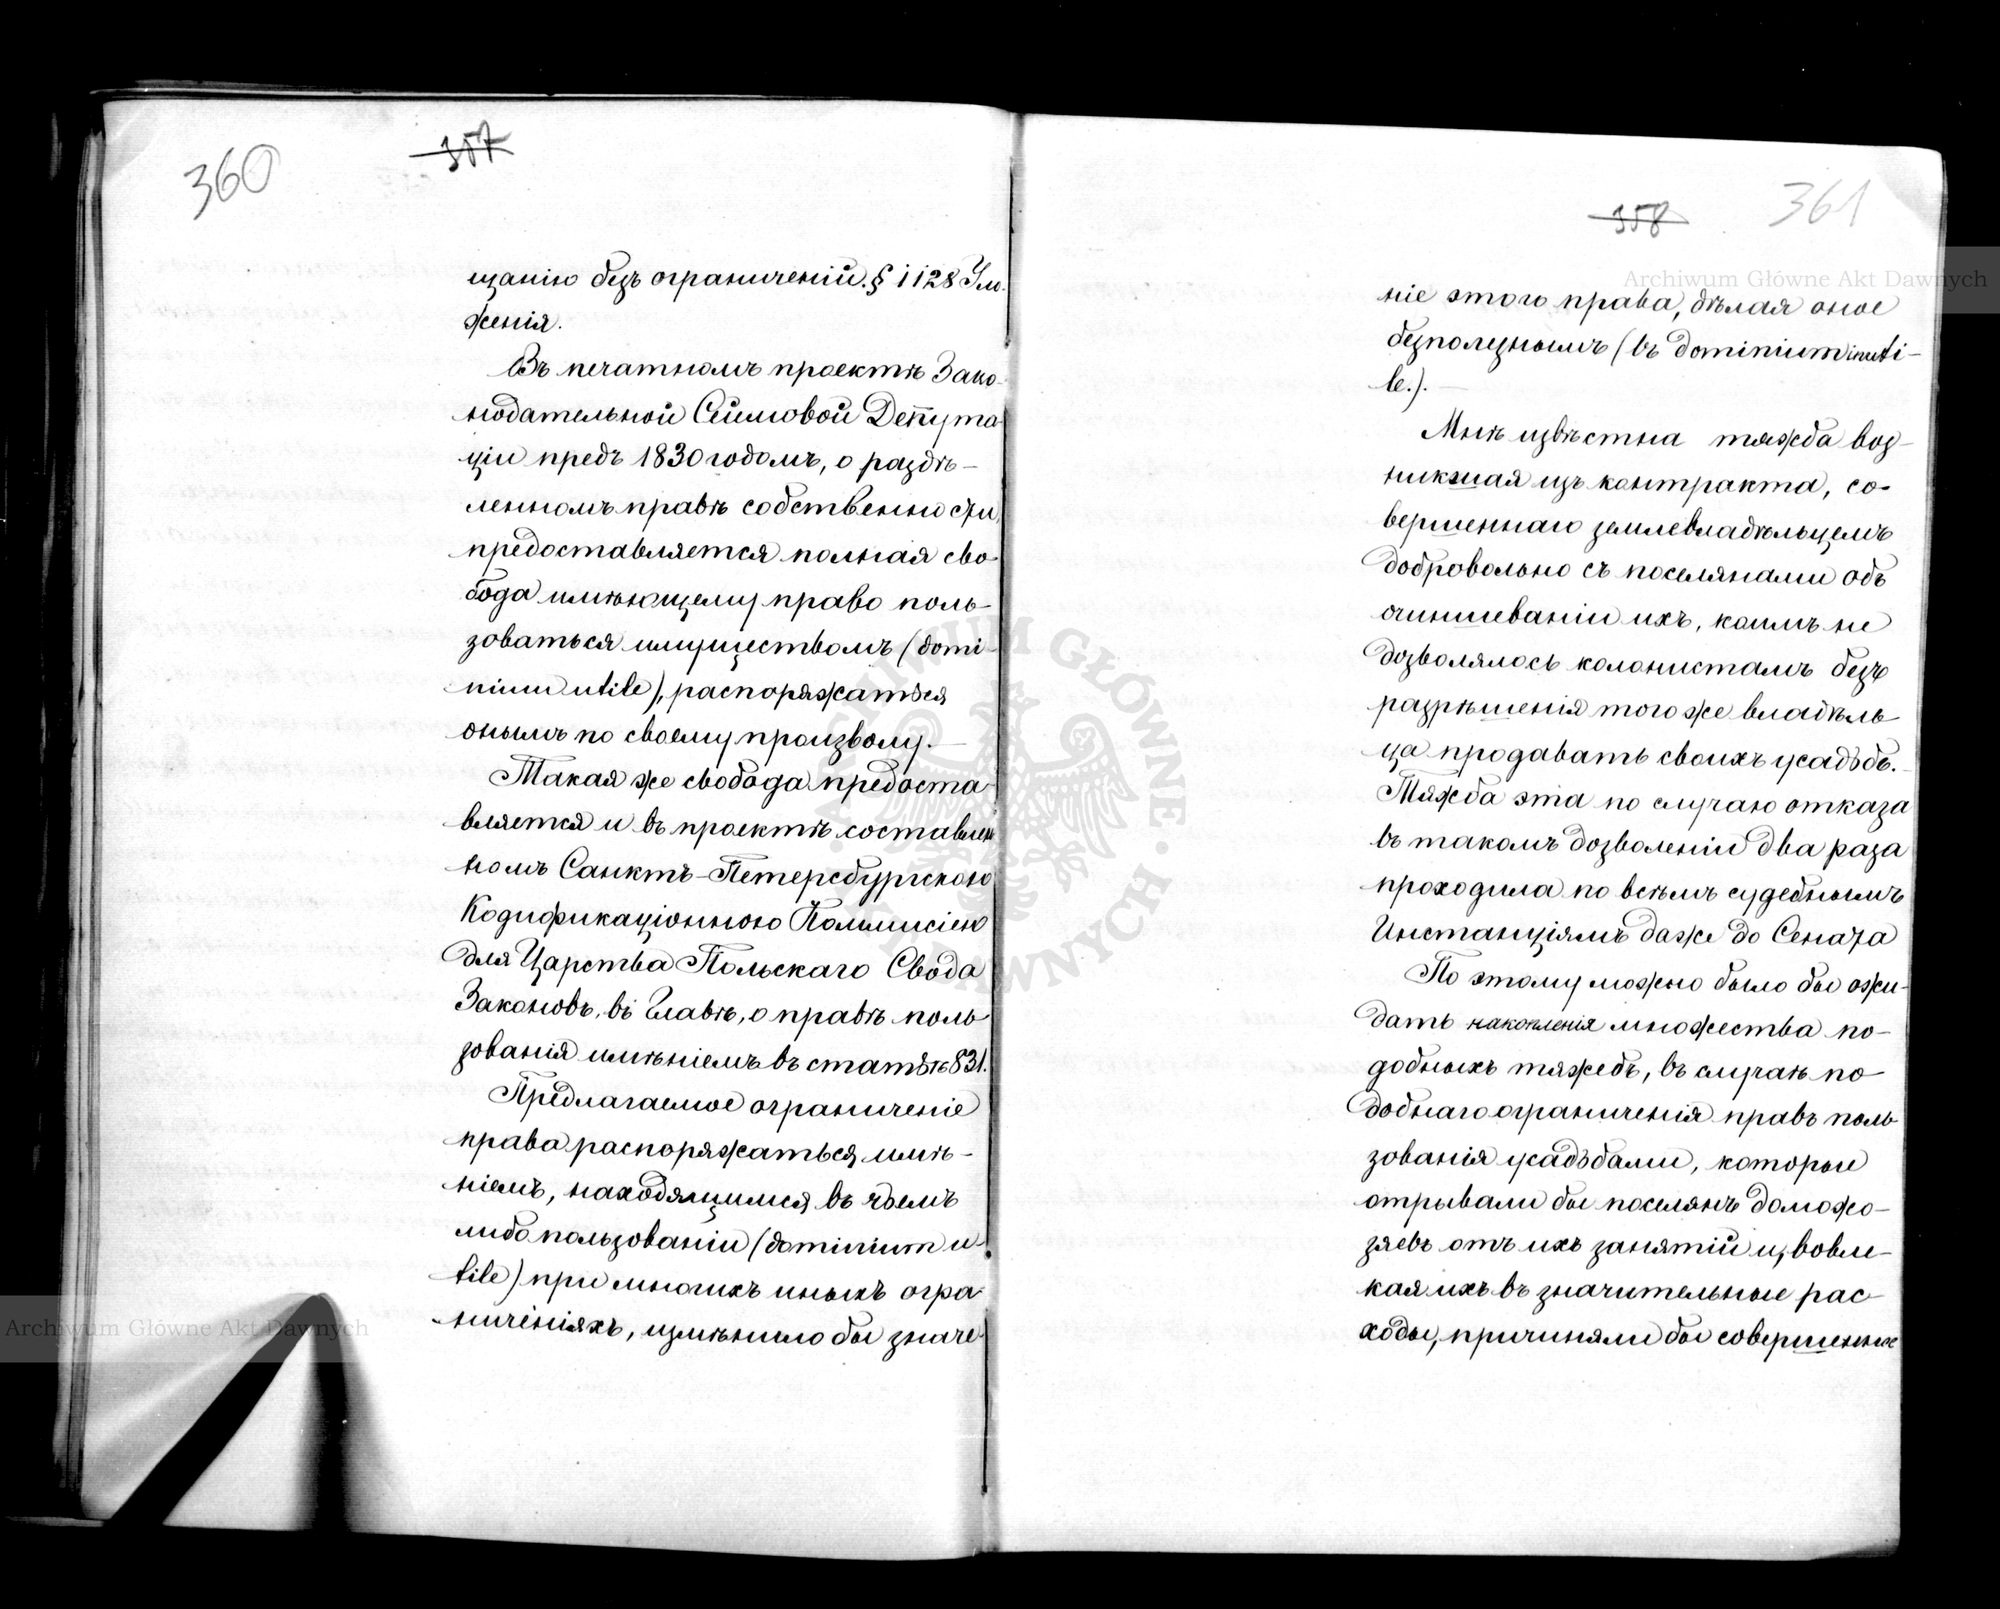 360
357
щанію безъ ограниченій. § 1128 Уло-
женія.
Въ печатномъ проектѣ Зако-
нодательной Сеймовой Депута
ціи предъ 1830 годомъ, о раздѣ-
ленномъ правѣ собственности,
предоставляется полная сво-
бода имѣющему право поль-
зоваться имуществомъ (domi-
nium utile), распоряжаться
онымъ по своему произволу.—
Такая же свобода предоста-
вляется и въ проектѣ составлен
номъ Санктъ-Петербургскою
Кодификаціонною Коммисіею
для Царства Польскаго Свода
Законовъ, въ Главѣ, о правѣ поль
зованія имѣніемъ въ статьѣ 831.
Предлагаемое ограниченіе
права распоряжаться имѣ-
ніемъ, находящимся въ чьемъ
либо пользованіи (dominium u-
tile) при многихъ иныхъ огра
ниченіяхъ, измѣнило бы значе
358
361
ніе этого права, дѣлая оное
безполезнымъ (въ dominium inuti-
le.).—
Мнѣ извѣстна тяжба воз-
никшая изъ контракта, со-
вершеннаго землевладѣльцемъ
добровольно съ поселянами объ
очиншеваніи ихъ, коимъ не
дозволялось колонистамъ безъ
разрѣшенія того же владѣль
ца продавать своихъ усадьбъ.
Тяжба эта по случаю отказа
въ такомъ дозволеніи два раза
проходила по всѣмъ судебнымъ
Инстанціямъ даже до Сената
По этому можно было бы ожи-
дать накопленія множества по-
добныхъ тяжебъ, въ случаѣ по
добнаго ограниченія правъ поль
зованія усадьбами, которыя
отрывали бы поселянъ домохо-
зяевъ отъ ихъ занятій и, вовле-
кая ихъ въ значительные рас-
ходы, причиняли бы совершенное
Archiwum Główne Akt Dawnych
Archiwum Główne Akt Dawnych